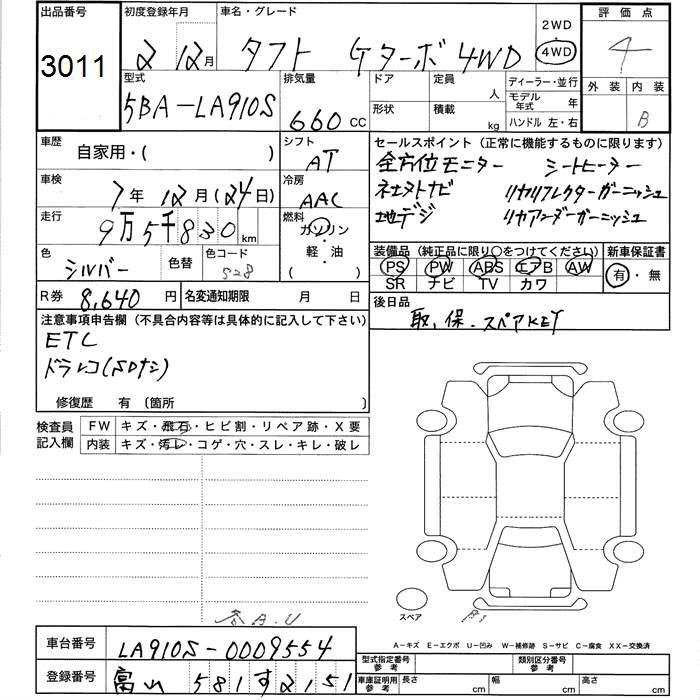 出品番号 初度登録年月 車名・グレード 2WD 評価点
3011 2 12月 タフト Gターボ 4WD 4WD 4
型式 排気量 ドア 定員 人 ディーラー・並行 外装 内装
5BA-LA910S 660CC 形状 積載 kg モデル年式 年 B
ハンドル 左・右
車歴 自家用・( ) シフト AT セールスポイント(正常に機能するものに限ります)
車検 7年 12月(24日) 冷房 AAC 全方位モニター シートヒーター
コネクトナビ リヤリフレクターガーニッシュ
走行 9万5千830km 燃料 ガソリン・軽・油( ) 地デジ リヤアンダーガーニッシュ
色 シルバー 色替 色コード S28 装備品(純正品に限り○をつけてください) 新車保証書
PS PW ABS エアB AW 有・無
SR ナビ TV カワ
R券 8,640円 名変通知期限 月 日 後日品
取,保.スペアKEY
注意事項申告欄(不具合内容等は具体的に記入して下さい)
ETC
ドラレコ(SDナシ)
修復歴 有〔箇所 〕
検査員記入欄 FW キズ・飛石・ヒビ割・リペア跡・X要
内装 キズ・汚レ・コゲ・穴・スレ・キレ・破レ
A.U
スペア
A-キズ E-エクボ U-凹み W-補修跡 S-サビ C-腐食 XX-交換済
車台番号 LA910S-0009554 型式指定番号参考 類別区分番号参考
登録番号 富山 581す2151 車庫証明用参考 長さ cm 幅 cm 高さ cm